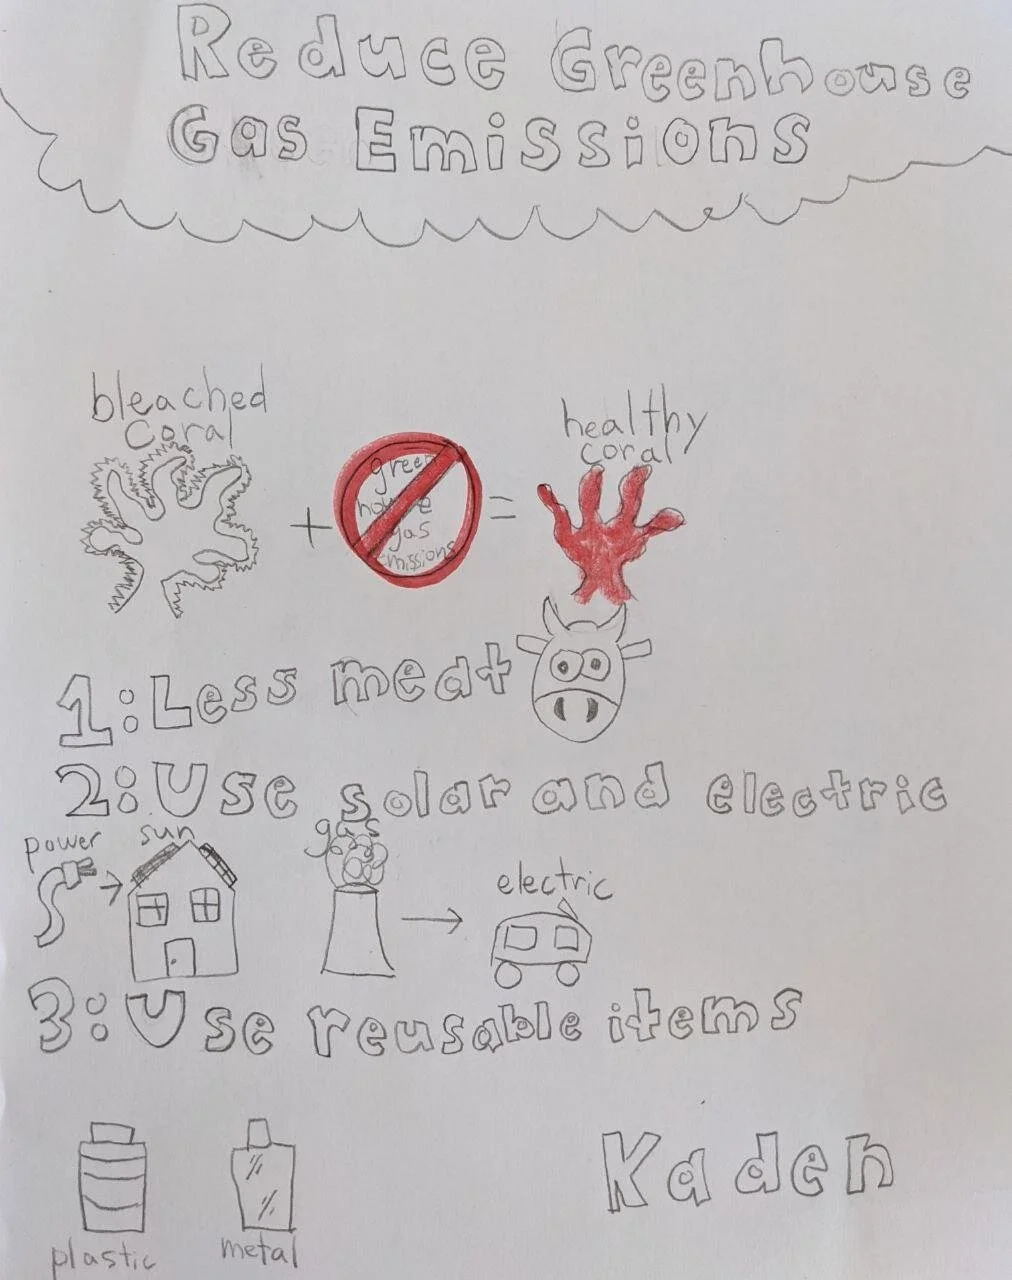 Reduce Greenhouse
Gas Emissions
bleached
coral
healthy
coral
+
green
house
gas
emissions
=
1: Less meat
2: Use solar and electric
power
sun
gas
electric
3: Use reusable items
Kaden
plastic
metal